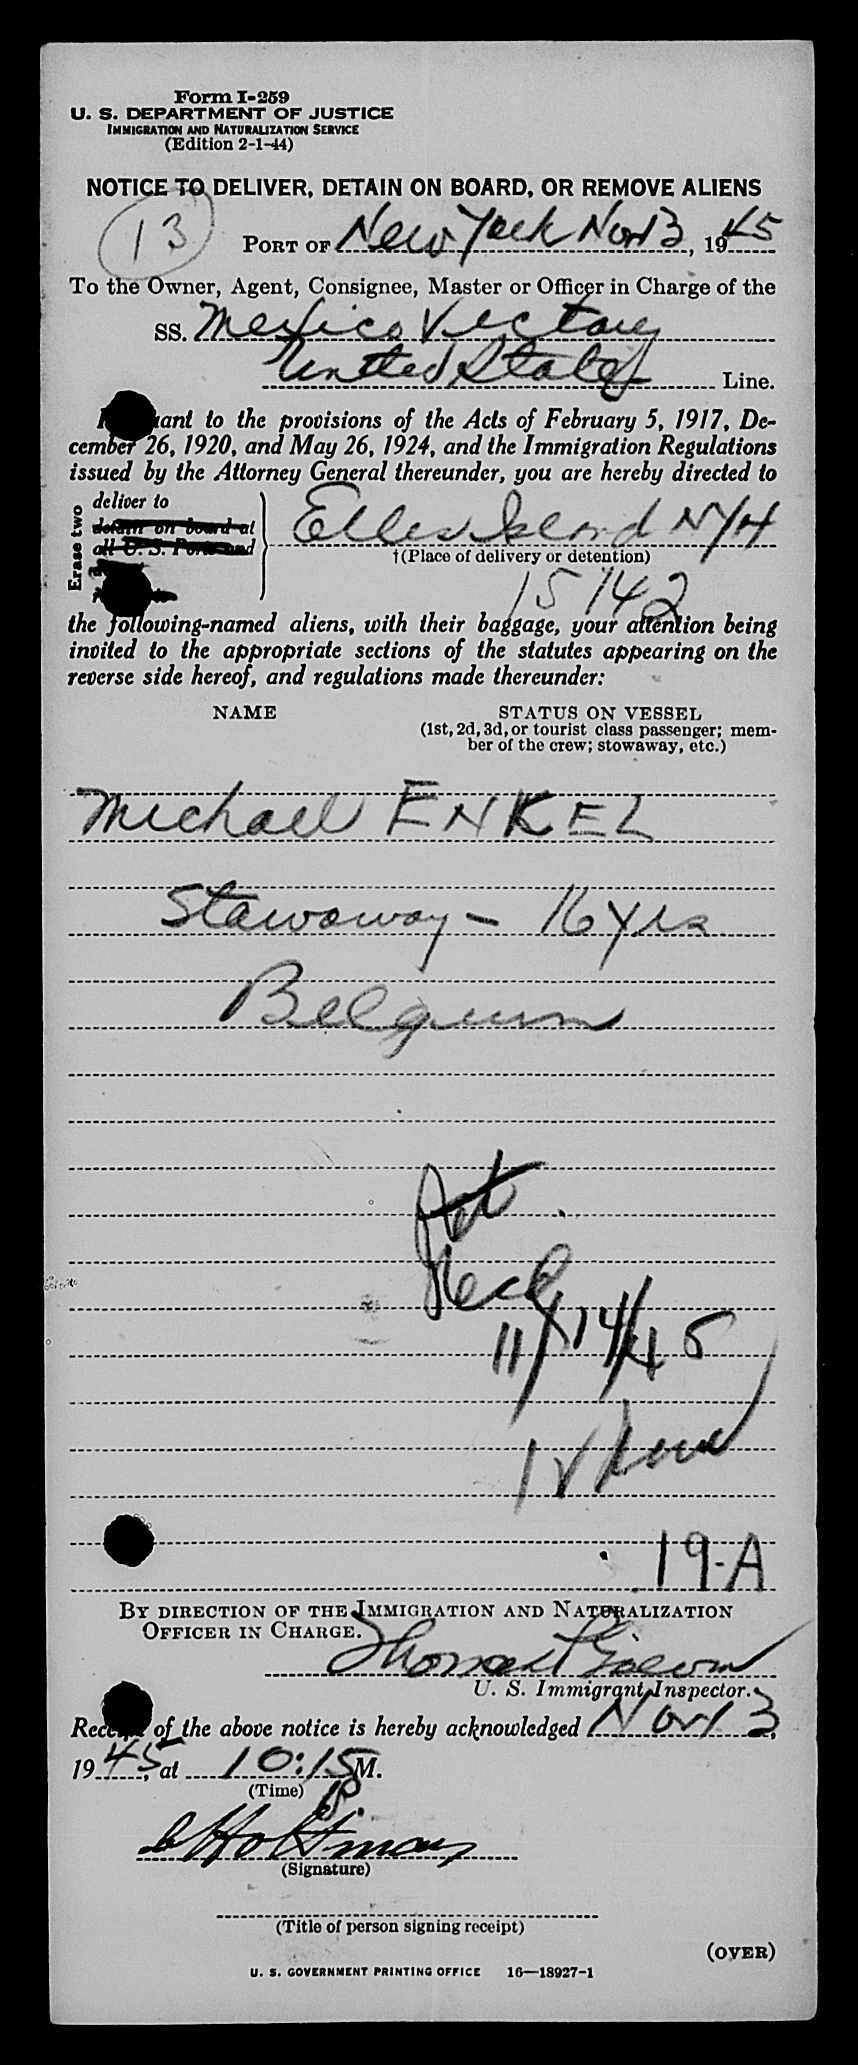 Form I-259
U. S. DEPARTMENT OF JUSTICE
IMMIGRATION AND NATURALIZATION SERVICE
(Edition 2-1-44)
NOTICE TO DELIVER, DETAIN ON BOARD, OR REMOVE ALIENS
13
PORT OF New York Nov 13, 1945
To the Owner, Agent, Consignee, Master or Officer in Charge of the
SS. Mexico Victory
United States Line.
uant to the provisions of the Acts of February 5, 1917, De-
cember 26, 1920, and May 26, 1924, and the Immigration Regulations
issued by the Attorney General thereunder, you are hereby directed to
Erase two
deliver to
detain on board at
all U. S. Ports and
Ellis Island NYH
†(Place of delivery or detention)
15142
the following-named aliens, with their baggage, your attention being
invited to the appropriate sections of the statutes appearing on the
reverse side hereof, and regulations made thereunder:
NAME STATUS ON VESSEL
(1st, 2d, 3d, or tourist class passenger; mem-
ber of the crew; stowaway, etc.)
Michael ENKEL
Stowaway - 16 yrs
Belgium
11/14/45
19-A
BY DIRECTION OF THE IMMIGRATION AND NATURALIZATION
OFFICER IN CHARGE.
Thomas
U. S. Immigrant Inspector.
Receipt of the above notice is hereby acknowledged Nov 13,
1945, at 10:15 P M.
(Time)
Holtman
(Signature)
(Title of person signing receipt)
(OVER)
U. S. GOVERNMENT PRINTING OFFICE 16—18927-1